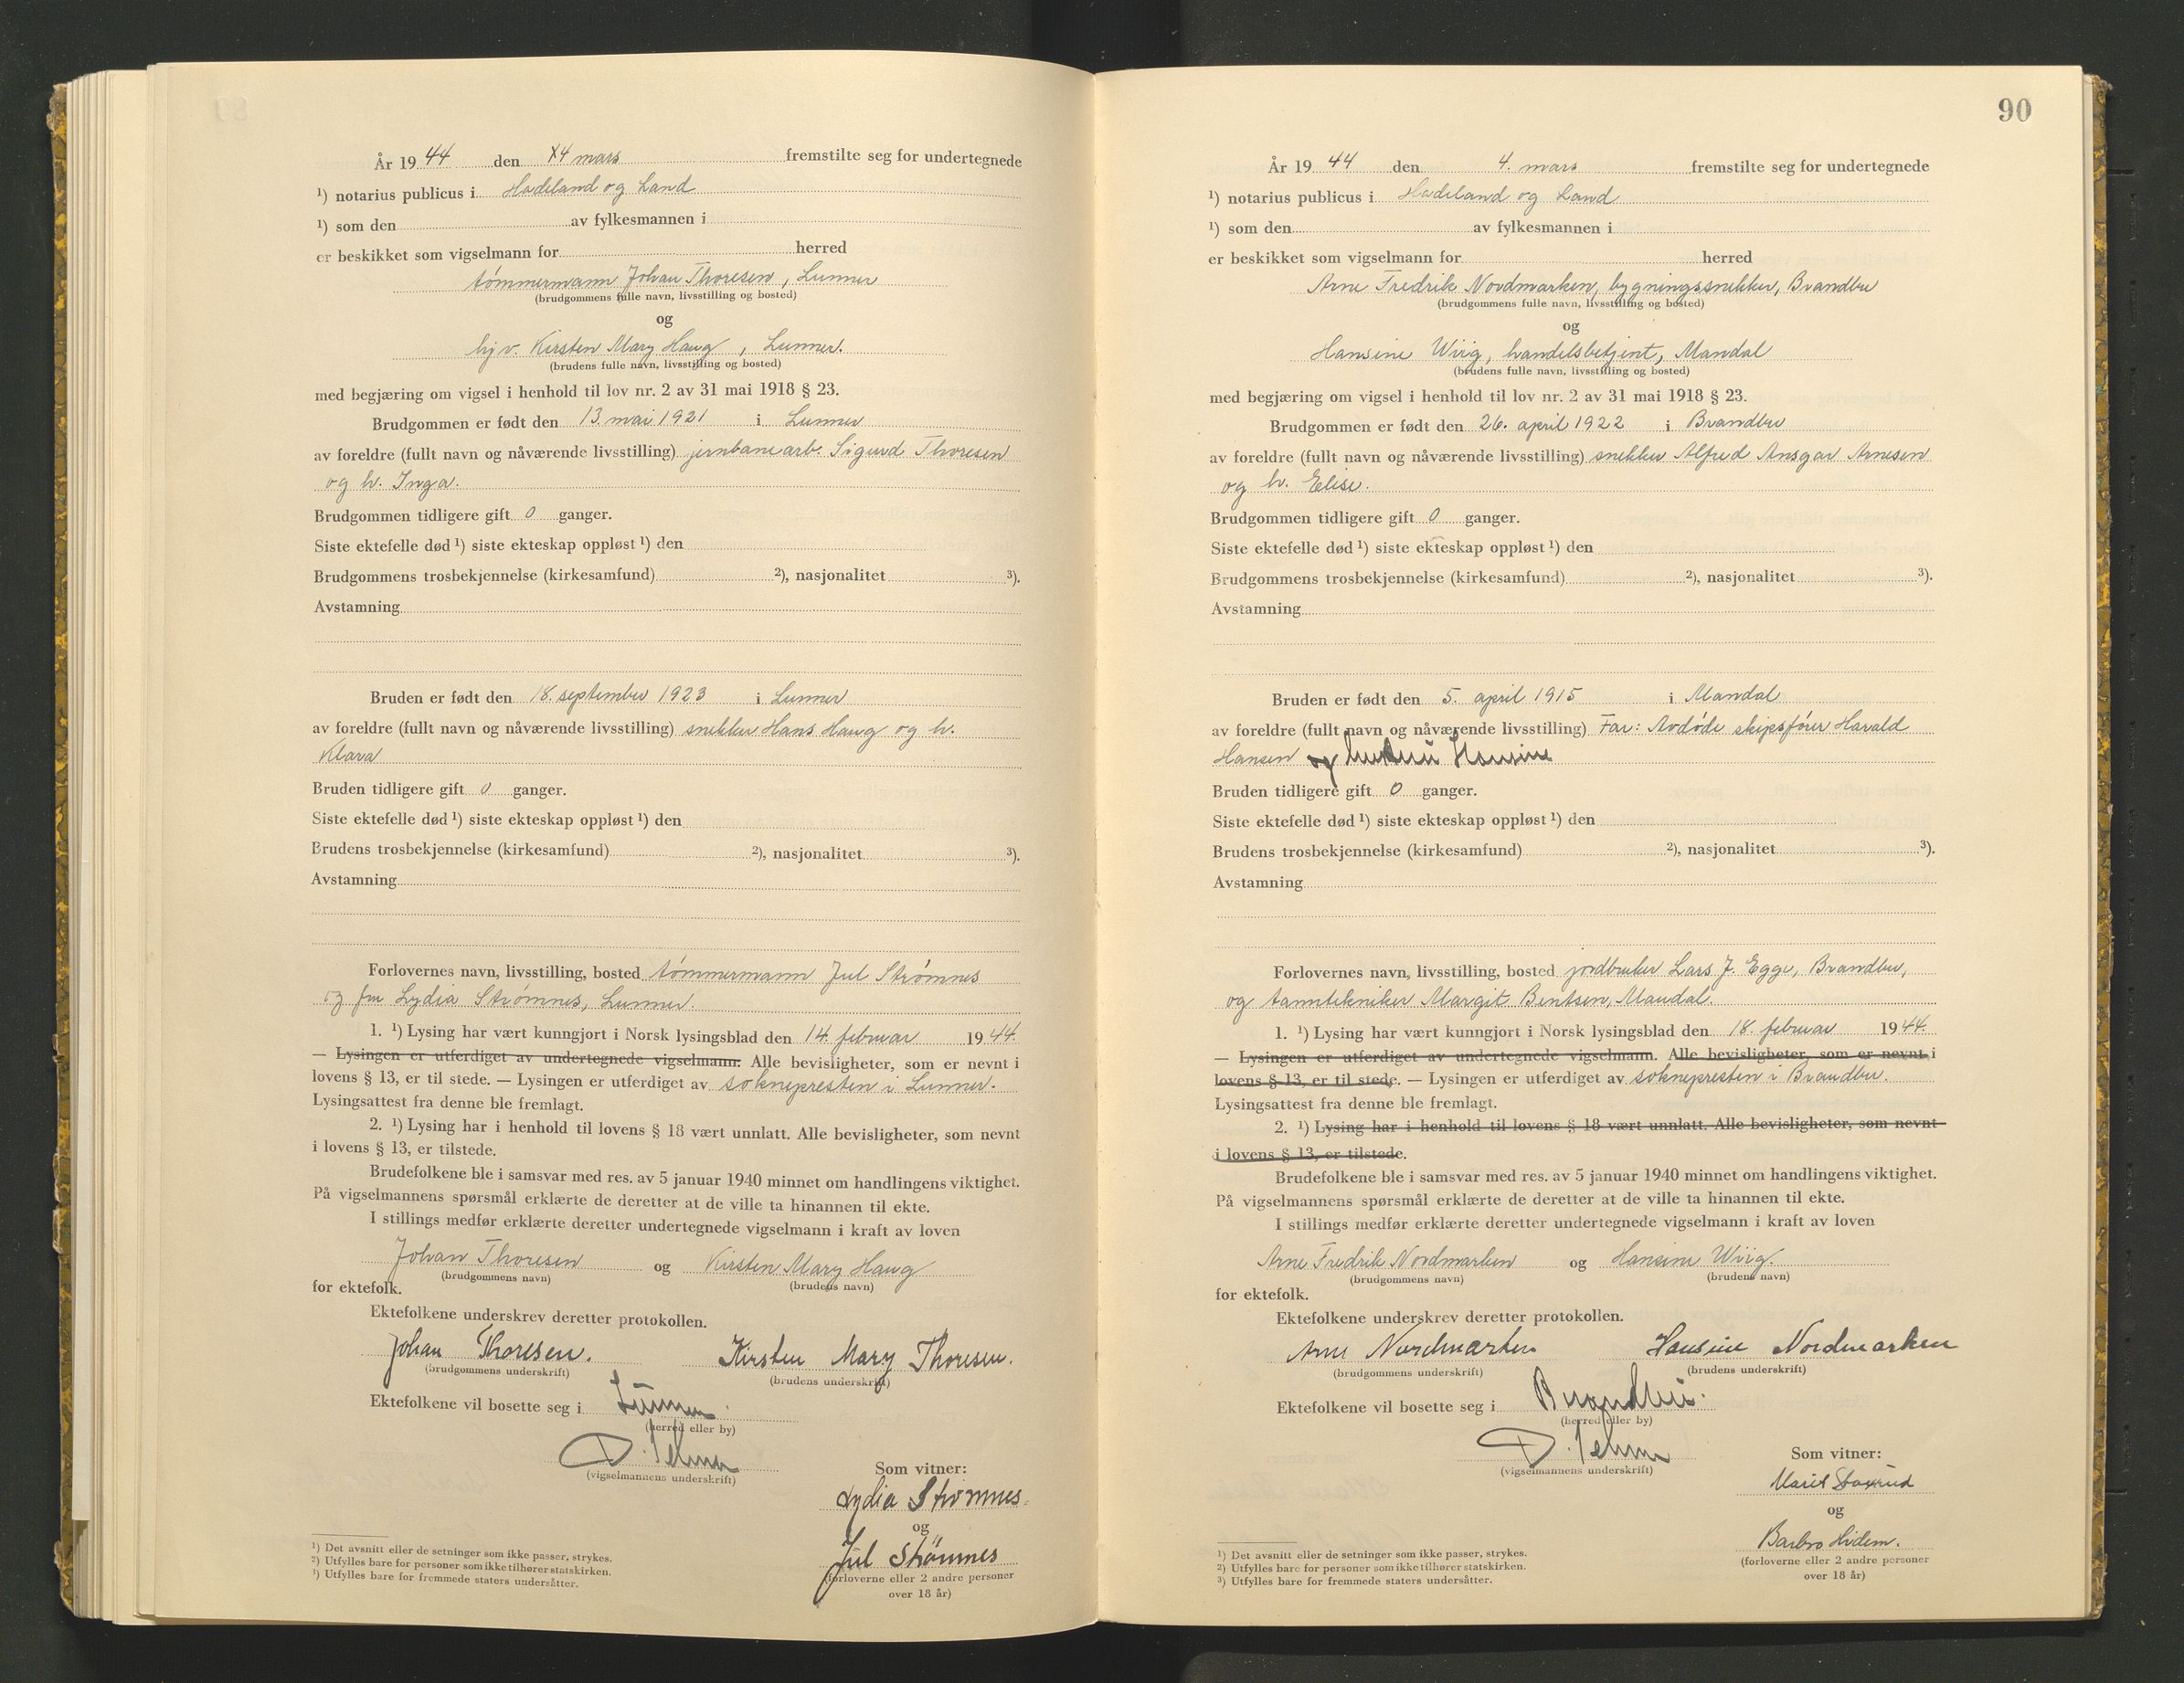 År 1944 den 4 mars fremstilte seg for undertegnede
¹) notarius publicus i Hadeland og Land
¹) som den av fylkesmannen i
er beskikket som vigselmann for herred
tømmermann Johan Thoresen, Lunner
(brudgommens fulle navn, livsstilling og bosted)
og
hjv. Kirsten Mary Haug, Lunner.
(brudens fulle navn, livsstilling og bosted)
med begjæring om vigsel i henhold til lov nr. 2 av 31 mai 1918 § 23.
Brudgommen er født den 13. mai 1921 i Lunner
av foreldre (fullt navn og nåværende livsstilling) jernbanearb. Sigurd Thoresen
og h. Inga.
Brudgommen tidligere gift 0 ganger.
Siste ektefelle død ¹) siste ekteskap oppløst ¹) den
Brudgommens trosbekjennelse (kirkesamfund) ²), nasjonalitet ³).
Avstamning
Bruden er født den 18. september 1923 i Lunner
av foreldre (fullt navn og nåværende livsstilling) snekker Hans Haug og h.
Klara
Bruden tidligere gift 0 ganger.
Siste ektefelle død ¹) siste ekteskap oppløst ¹) den
Brudens trosbekjennelse (kirkesamfund) ²), nasjonalitet ³).
Avstamning
Forlovernes navn, livsstilling, bosted tømmermann Jul Strømnes
og fru Lydia Strømnes, Lunner.
1. ¹) Lysing har vært kunngjort i Norsk lysingsblad den 14. februar 1944.
— Lysingen er utferdiget av undertegnede vigselmann. Alle bevisligheter, som er nevnt i
lovens § 13, er til stede. — Lysingen er utferdiget av soknepresten i Lunner.
Lysingsattest fra denne ble fremlagt.
2. ¹) Lysing har i henhold til lovens § 18 vært unnlatt. Alle bevisligheter, som nevnt
i lovens § 13, er tilstede.
Brudefolkene ble i samsvar med res. av 5 januar 1940 minnet om handlingens viktighet.
På vigselmannens spørsmål erklærte de deretter at de ville ta hinannen til ekte.
I stillings medfør erklærte deretter undertegnede vigselmann i kraft av loven
Johan Thoresen og Kirsten Mary Haug
(brudgommens navn) (brudens navn)
for ektefolk.
Ektefolkene underskrev deretter protokollen.
Johan Thoresen. Kirsten Mary Thoresen.
(brudgommens underskrift) (brudens underskrift)
Ektefolkene vil bosette seg i Lunner.
(herred eller by)
(vigselmannens underskrift)
Som vitner:
Lydia Strømnes.
og
Jul Strømnes
(forloverne eller 2 andre personer
over 18 år)
¹) Det avsnitt eller de setninger som ikke passer, strykes.
²) Utfylles bare for personer som ikke tilhører statskirken.
³) Utfylles bare for fremmede staters undersåtter.
90
År 1944 den 4. mars fremstilte seg for undertegnede
¹) notarius publicus i Hadeland og Land
¹) som den av fylkesmannen i
er beskikket som vigselmann for herred
Arne Fredrik Nordmarken, bygningssnekker, Brandbu
(brudgommens fulle navn, livsstilling og bosted)
og
Hansine Wiig, handelsbetjent, Mandal
(brudens fulle navn, livsstilling og bosted)
med begjæring om vigsel i henhold til lov nr. 2 av 31 mai 1918 § 23.
Brudgommen er født den 26. april 1922 i Brandbu
av foreldre (fullt navn og nåværende livsstilling) snekker Alfred Ansgar Arnesen
og h. Elise.
Brudgommen tidligere gift 0 ganger.
Siste ektefelle død ¹) siste ekteskap oppløst ¹) den
Brudgommens trosbekjennelse (kirkesamfund) ²), nasjonalitet ³).
Avstamning
Bruden er født den 5. april 1915 i Mandal
av foreldre (fullt navn og nåværende livsstilling) Far: Avdøde skipsfører Harald
Hansen og hustru Hansine
Bruden tidligere gift 0 ganger.
Siste ektefelle død ¹) siste ekteskap oppløst ¹) den
Brudens trosbekjennelse (kirkesamfund) ²), nasjonalitet ³).
Avstamning
Forlovernes navn, livsstilling, bosted jordbruker Lars J. Egge, Brandbu,
og tanntekniker Margit Bentsen, Mandal.
1. ¹) Lysing har vært kunngjort i Norsk lysingsblad den 18. februar 1944.
— Lysingen er utferdiget av undertegnede vigselmann. Alle bevisligheter, som er nevnt i
lovens § 13, er til stede. — Lysingen er utferdiget av soknepresten i Brandbu.
Lysingsattest fra denne ble fremlagt.
2. ¹) Lysing har i henhold til lovens § 18 vært unnlatt. Alle bevisligheter, som nevnt
i lovens § 13, er tilstede.
Brudefolkene ble i samsvar med res. av 5 januar 1940 minnet om handlingens viktighet.
På vigselmannens spørsmål erklærte de deretter at de ville ta hinannen til ekte.
I stillings medfør erklærte deretter undertegnede vigselmann i kraft av loven
Arne Fredrik Nordmarken og Hansine Wiig.
(brudgommens navn) (brudens navn)
for ektefolk.
Ektefolkene underskrev deretter protokollen.
Arne Nordmarken Hansine Nordmarken
(brudgommens underskrift) (brudens underskrift)
Ektefolkene vil bosette seg i Brandbu.
(herred eller by)
(vigselmannens underskrift)
Som vitner:
Marit
og
Barbro Hidem.
(forloverne eller 2 andre personer
over 18 år)
¹) Det avsnitt eller de setninger som ikke passer, strykes.
²) Utfylles bare for personer som ikke tilhører statskirken.
³) Utfylles bare for fremmede staters undersåtter.